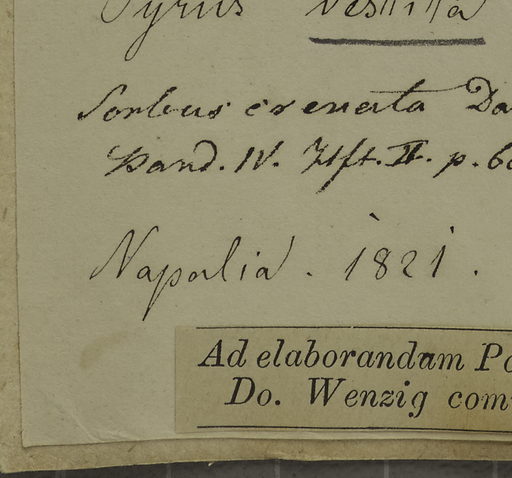 Pyrus vestita
Sorbus crenata Do
Hand. IV. Hft. II. p. 6
Napalia. 1821.
Ad elaborandam Po
Do. Wenzig com